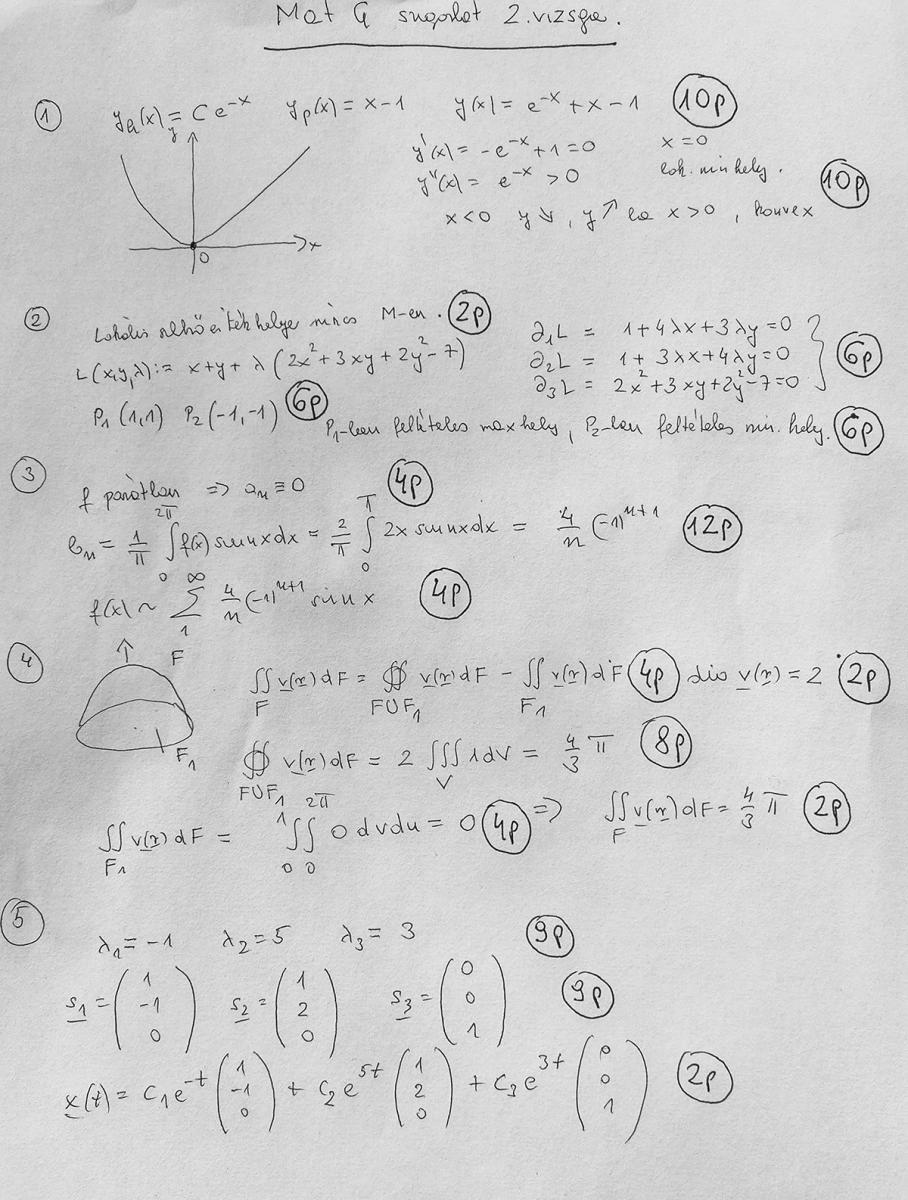 Mat G szigorlat 2. vizsga.
① y_h(x) = C e^{-x} y_p(x) = x-1 y(x) = e^{-x} + x - 1 10p
y'(x) = -e^{-x} + 1 = 0 x = 0
y''(x) = e^{-x} > 0 lok. min hely.
x<0 y ↘, y ↗ ha x>0, konvex 10p
y x 0
② Lokális szélsőértékhelye nincs M-en. 2p
L(x,y,λ) := x+y+ λ(2x²+3xy+2y²-7)
∂₁L = 1+4λx+3λy=0
∂₂L = 1+3λx+4λy=0
∂₃L = 2x²+3xy+2y²-7=0 } 6p
P₁(1,1) P₂(-1,-1) 6p
P₁-ben feltételes max hely, P₂-ben feltételes min. hely. 6p
③ f páratlan ⇒ a_n ≡ 0 4p
b_n = 1/π ∫_0^{2π} f(x) sin nx dx = 2/π ∫_0^π 2x sin nx dx = 4/n (-1)^{n+1} 12p
f(x) ~ ∑_1^∞ 4/n (-1)^{n+1} sin nx 4p
④ F F₁
∬_F v(r) dF = ∯_{F∪F₁} v(r) dF - ∬_{F₁} v(r) dF 4p div v(r) = 2 2p
∯_{F∪F₁} v(r) dF = 2 ∭_V 1 dV = 4/3 π 8p
∬_{F₁} v(r) dF = ∫_0^1 ∫_0^{2π} 0 dv du = 0 4p ⇒ ∬_F v(r) dF = 4/3 π 2p
⑤ λ₁ = -1 λ₂ = 5 λ₃ = 3 9p
s₁ = (1 -1 0) s₂ = (1 2 0) s₃ = (0 0 1) 9p
x(t) = c₁e^{-t} (1 -1 0) + c₂e^{5t} (1 2 0) + c₃e^{3t} (0 0 1) 2p